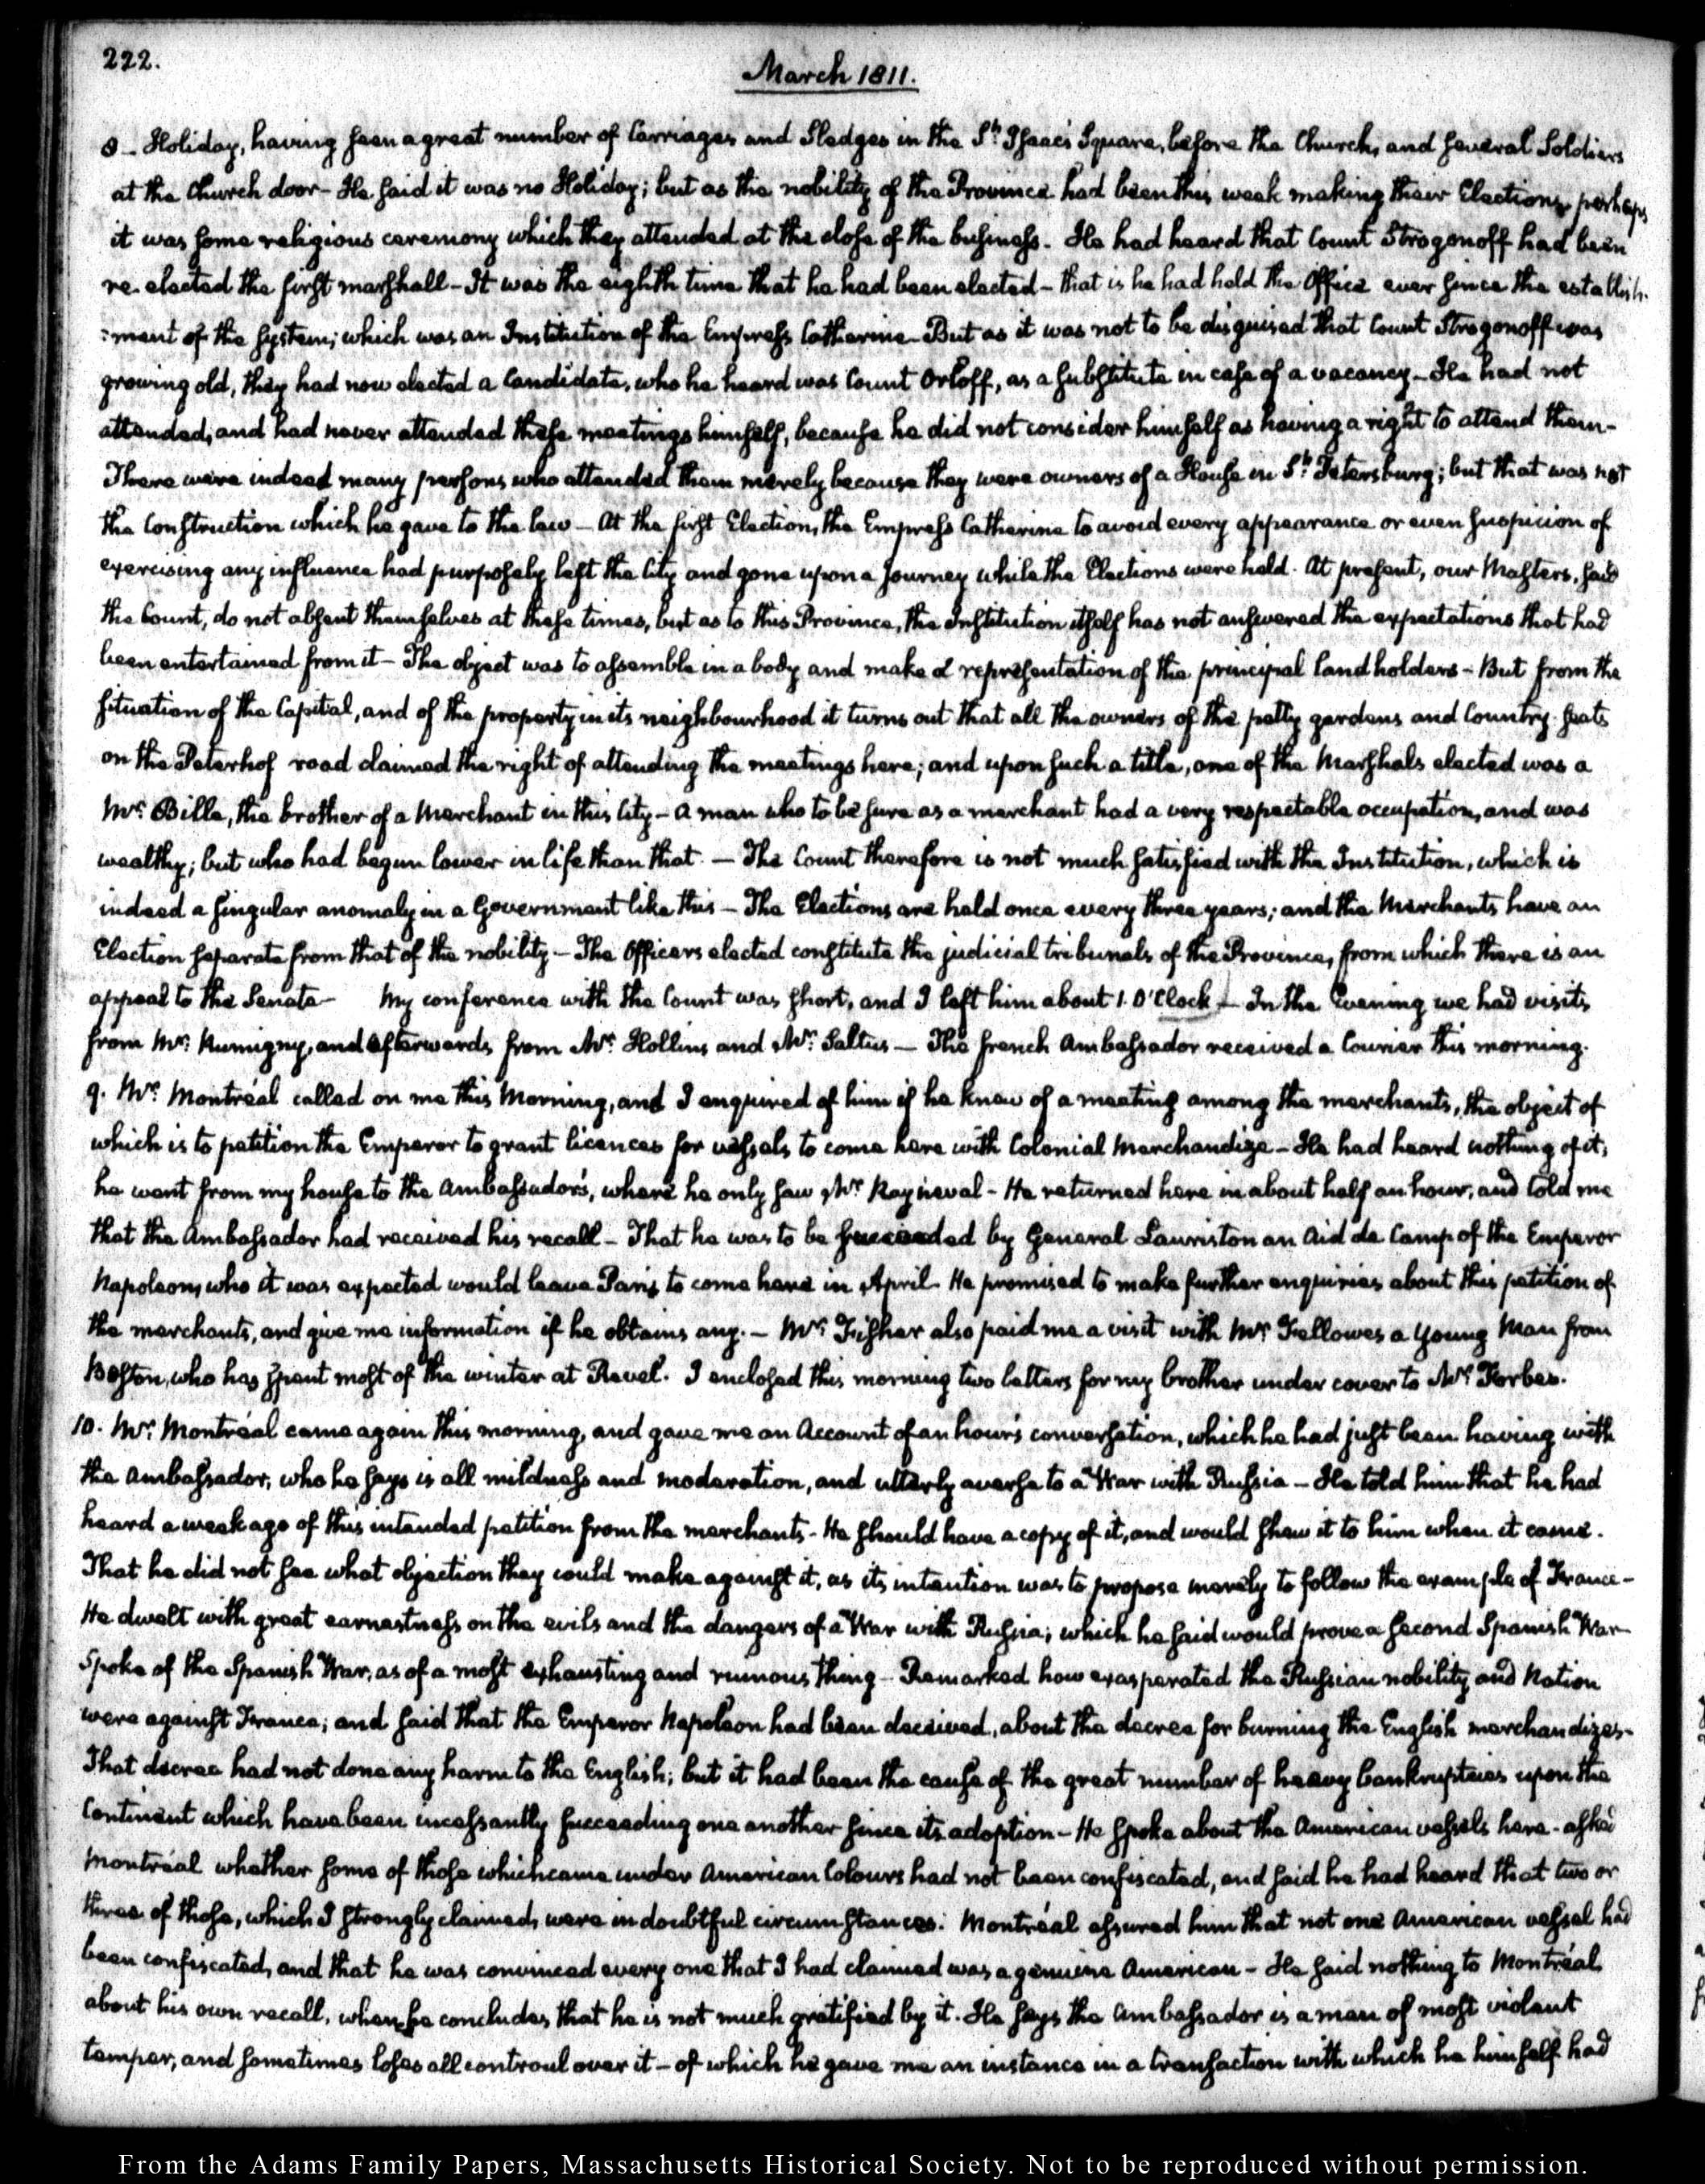 222.
March 1811.
8 - Holiday, having seen a great number of Carriages and Sledges in the St. Isaac's Square, before the Church, and several Soldiers
at the Church door - He said it was no Holiday; but as the nobility of the Province had been this week making their Elections, perhaps
it was some religious ceremony which they attended at the close of the business. He had heard that Count Strogonoff had been
re-elected the first marshall - It was the eighth time that he had been elected - that is he had held the Office ever since the establish-
:ment of the System; which was an Institution of the Empress Catherine - But as it was not to be disguised that Count Strogonoff was
growing old, they had now elected a Candidate, who he heard was Count Orloff, as a substitute in case of a vacancy - He had not
attended, and had never attended these meetings himself, because he did not consider himself as having a right to attend them -
There were indeed many persons who attended them merely because they were owners of a House in St. Petersburg; but that was not
the Construction which he gave to the law - At the first Election, the Empress Catherine to avoid every appearance or even suspicion of
exercising any influence had purposely left the City and gone upon a journey while the Elections were held. At present, our Masters, said
the Count, do not absent themselves at these times, but as to this Province, the Institution itself has not answered the expectations that had
been entertained from it - The object was to assemble in a body and make a representation of the principal landholders - But from the
situation of the Capital, and of the property in its neighbourhood it turns out that all the owners of the petty gardens and Country-seats
on the Peterhof road claimed the right of attending the meetings here; and upon such a title, one of the Marshals elected was a
Mr. Bille, the brother of a Merchant in this City - a man who to be sure as a merchant had a very respectable occupation, and was
wealthy; but who had begun lower in life than that. - The Count therefore is not much satisfied with the Institution, which is
indeed a singular anomaly in a Government like this - The Elections are held once every three years; and the Merchants have an
Election separate from that of the nobility - The Officers elected constitute the judicial tribunals of the Province, from which there is an
appeal to the Senate - My conference with the Count was short, and I left him about 1. O'Clock - In the Evening we had visits
from Mr. Rumigny, and afterwards from Mr. Hollins and Mr. Saltus - The french Ambassador received a Courier this morning.
9. Mr. Montréal called on me this Morning, and I enquired of him if he knew of a meeting among the merchants, the object of
which is to petition the Emperor to grant licences for vessels to come here with Colonial Merchandize - He had heard nothing of it;
he went from my house to the Ambassador's, where he only saw Mr. Rayneval - He returned here in about half an hour, and told me
that the Ambassador had received his recall - That he was to be succeeded by General Lauriston an Aid de Camp of the Emperor
Napoleon, who it was expected would leave Paris to come here in April. He promised to make further enquiries about this petition of
the merchants, and give me information if he obtains any. - Mr. Fisher also paid me a visit with Mr. Fellowes a young Man from
Boston, who has spent most of the winter at Revel. I enclosed this morning two letters for my brother under cover to Mr. Forbes.
10. Mr. Montréal came again this morning, and gave me an Account of an hour's conversation, which he had just been having with
the Ambassador, who he says is all mildness and moderation, and utterly averse to a War with Russia - He told him that he had
heard a week ago of this intended petition from the merchants - He should have a copy of it, and would shew it to him when it came.
That he did not see what objection they could make against it, as its intention was to propose merely to follow the example of France -
He dwelt with great earnestness on the evils and the dangers of a War with Russia; which he said would prove a second Spanish War -
Spoke of the Spanish War, as of a most exhausting and ruinous thing - Remarked how exasperated the Russian nobility and Nation
were against France; and said that the Emperor Napoleon had been deceived, about the decree for burning the English merchandizes -
That decree had not done any harm to the English; but it had been the cause of the great number of heavy bankruptcies upon the
Continent which have been incessantly succeeding one another since its adoption - He spoke about the American vessels here - asked
Montréal whether some of those which came under American Colours had not been confiscated, and said he had heard that two or
three of those, which I strongly claimed, were in doubtful circumstances. Montréal assured him that not one American vessel had
been confiscated, and that he was convinced every one that I had claimed was a genuine American - He said nothing to Montréal
about his own recall, whence he concludes that he is not much gratified by it. He says the Ambassador is a man of most violent
temper, and sometimes loses all controul over it - of which he gave me an instance in a transaction with which he himself had
From the Adams Family Papers, Massachusetts Historical Society. Not to be reproduced without permission.